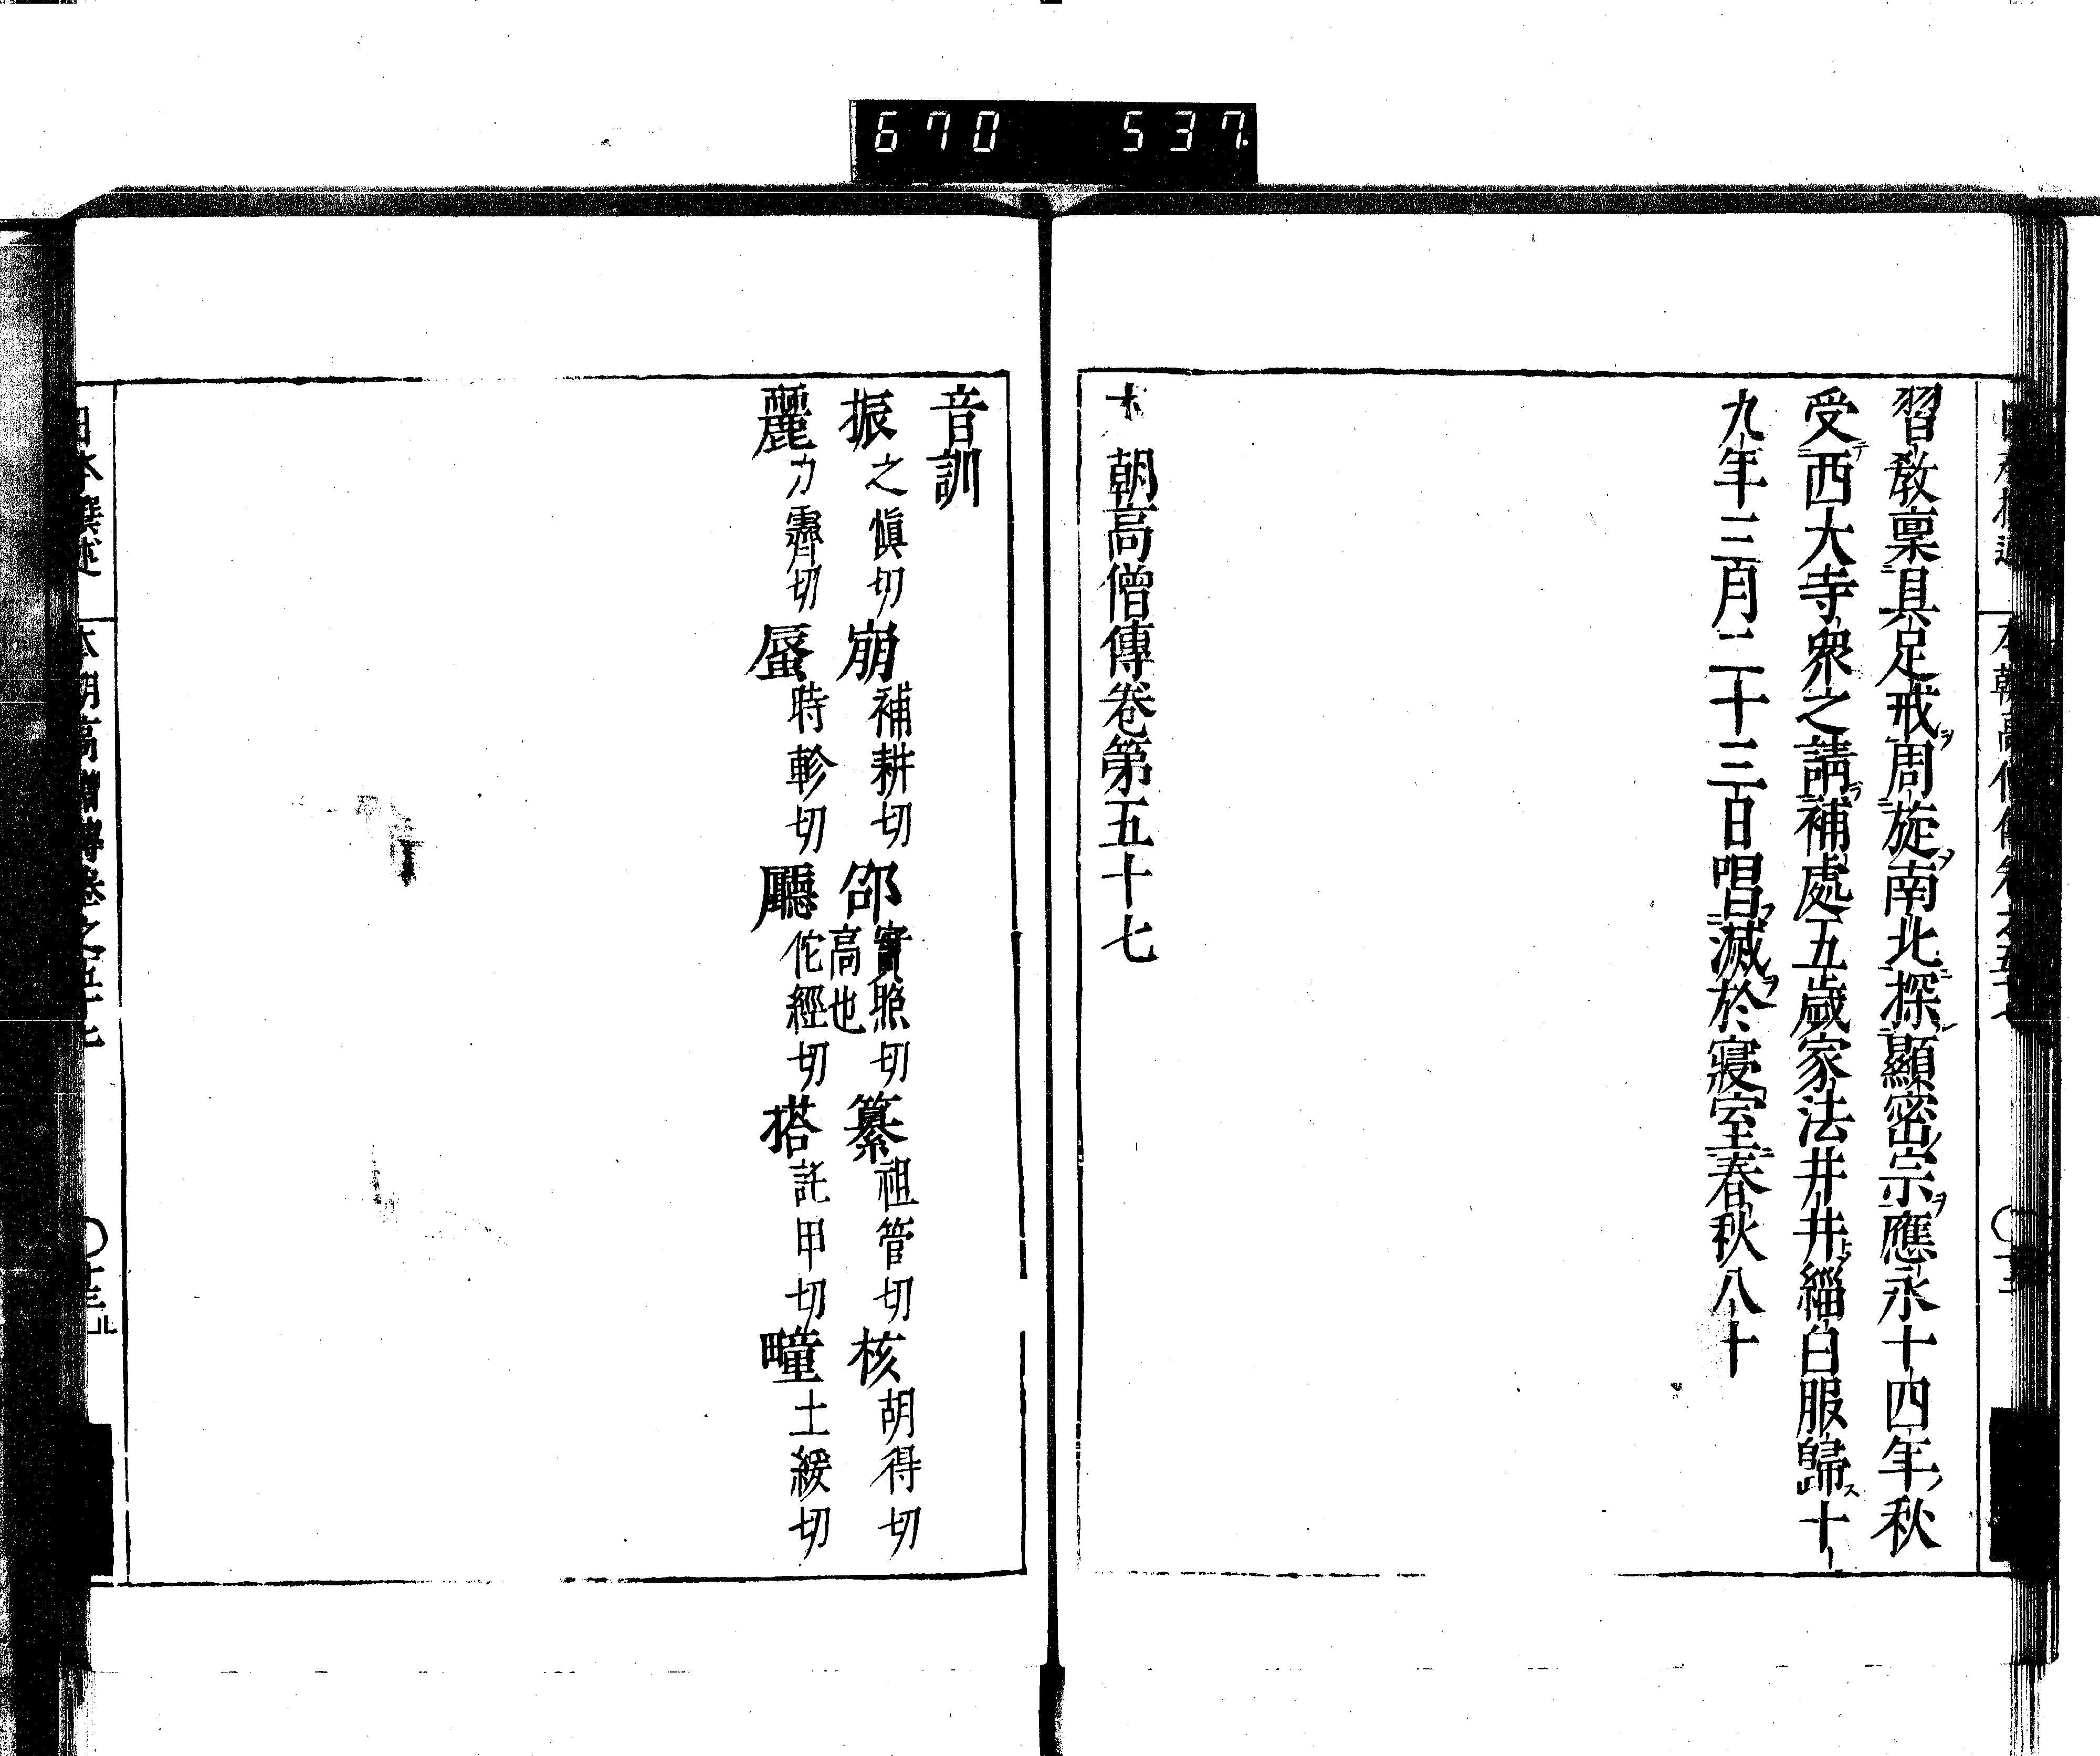 670 537.
習教稟具足戒周旋南北探顯密宗應永十四年秋
受西大寺衆之請補處五歲家法井井緇白服歸十
九年三月二十三日唱滅於寢室春秋八十
本朝高僧傳卷第五十七
音訓
振之愼切崩補耕切邵實照切高也纂祖管切核胡得切
麗力霽切蜃時軫切廳佗經切搭託甲切疃土緩切
日本撰述 本朝高僧傳卷之五十七